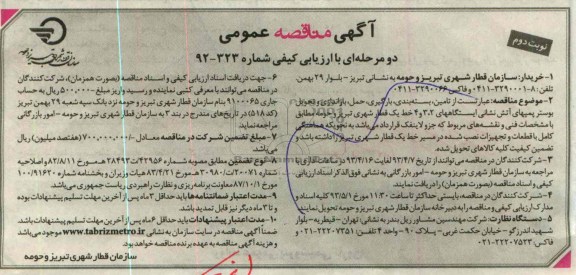 آگهی مناقصه عمومی
نوبت دوم
دو مرحله‌ای با ارزیابی کیفی شماره ۳۲۳-۹۲
۱- خریدار: سازمان قطار شهری تبریز و حومه به نشانی تبریز - بلوار ۲۹ بهمن
تلفن: ۸-۳۲۹۰۰۰۱-۰۴۱۱ و فاکس ۳۲۹۰۰۶۶-۰۴۱۱
۲- موضوع مناقصه: عبارتست از تامین، بسته‌بندی، بارگیری، حمل، باراندازی و تحویل
بوستر پمپهای آتش نشانی ایستگاههای ۲، ۳ و ۴ خط یک قطار شهری تبریز و حومه مطابق
با مشخصات فنی و نقشه‌های مربوط که جزو لاینفک قرارداد می‌باشد به نحویکه هماهنگی
کامل با قطعات و تجهیزات نصب شده در مسیر خط یک قطار شهری تبریز را داشته باشد و
تضمین کیفیت کلیه کالاهای تحویل شده.
۳- شرکت‌کنندگان در مناقصه می‌توانند از تاریخ ۹۳/۴/۷ لغایت ۹۳/۴/۱۶ در ساعات اداری با
مراجعه به سازمان قطار شهری تبریز و حومه - امور بازرگانی به نشانی فوق الذکر اسناد ارزیابی
کیفی و اسناد مناقصه (بصورت همزمان) را دریافت نمایند.
۴- شرکت‌کنندگان در مناقصه، بایستی حداکثر تا ساعت ۱۱:۳۰ مورخ ۹۳/۵/۱ کلیه اسناد و
مدارک ارزیابی کیفی و مناقصه را به دبیرخانه سازمان قطار شهری تبریز و حومه تحویل نمایند.
۵- دستگاه نظارت: شرکت مهندسین مشاور ریل بندر به نشانی تهران - قیطریه - بلوار
شهید اندرزگو - خیابان حکمت غربی - پلاک ۹۰ - واحد ۴ تلفن: ۲۲۲۰۷۳۵۱-۰۲۱
فاکس: ۲۲۲۰۷۵۲۳-۰۲۱
۶- جهت دریافت اسناد ارزیابی کیفی و اسناد مناقصه (بصورت همزمان)، شرکت‌کنندگان
در مناقصه می‌توانند با معرفی کتبی نماینده و رسید واریز مبلغ ۵۰۰,۰۰۰ ریال به حساب
جاری ۹۱۰۰۰۶۵ بنام سازمان قطار شهری تبریز و حومه نزد بانک سپه شعبه ۲۹ بهمن تبریز
(کد ۵۱۸) در تاریخهای مندرج در بند ۳ به سازمان قطار شهری تبریز و حومه - امور بازرگانی
مراجعه نماید.
۷- مبلغ تضمین شرکت در مناقصه معادل ۷۰۰,۰۰۰,۰۰۰ (هفتصد میلیون) ریال
می‌باشد.
۸- نوع تضمین مطابق مصوبه شماره ۴۲۹۵۶/ت۲۸۴۹۳ه مورخ ۸۲/۸/۱۱ و اصلاحیه
شماره ۲۰۰۷۱/ت۳۰۹۸۰ه مورخ ۸۳/۴/۲۱ هیات وزیران و بخشنامه شماره ۱۰۰/۹۱۶۲۰
مورخ ۸۷/۱۰/۱ معاونت برنامه ریزی و نظارت راهبردی ریاست جمهوری می‌باشد.
۹- مدت اعتبار ضمانتنامه‌ها باید حداقل ۳ ماه پس از آخرین مهلت تسلیم پیشنهادات بوده
و تا ۳ ماه دیگر نیز قابل تمدید باشد.
۱۰- مدت اعتبار پیشنهادات باید حداقل ۶ ماه پس از آخرین مهلت تسلیم پیشنهادات باشد.
ضمناً آگهی مناقصه در سایت سازمان به نشانی www.tabrizmetro.ir موجود می‌باشد
و هزینه آگهی مناقصه به عهده برنده مناقصه خواهد بود.
سازمان قطار شهری تبریز و حومه